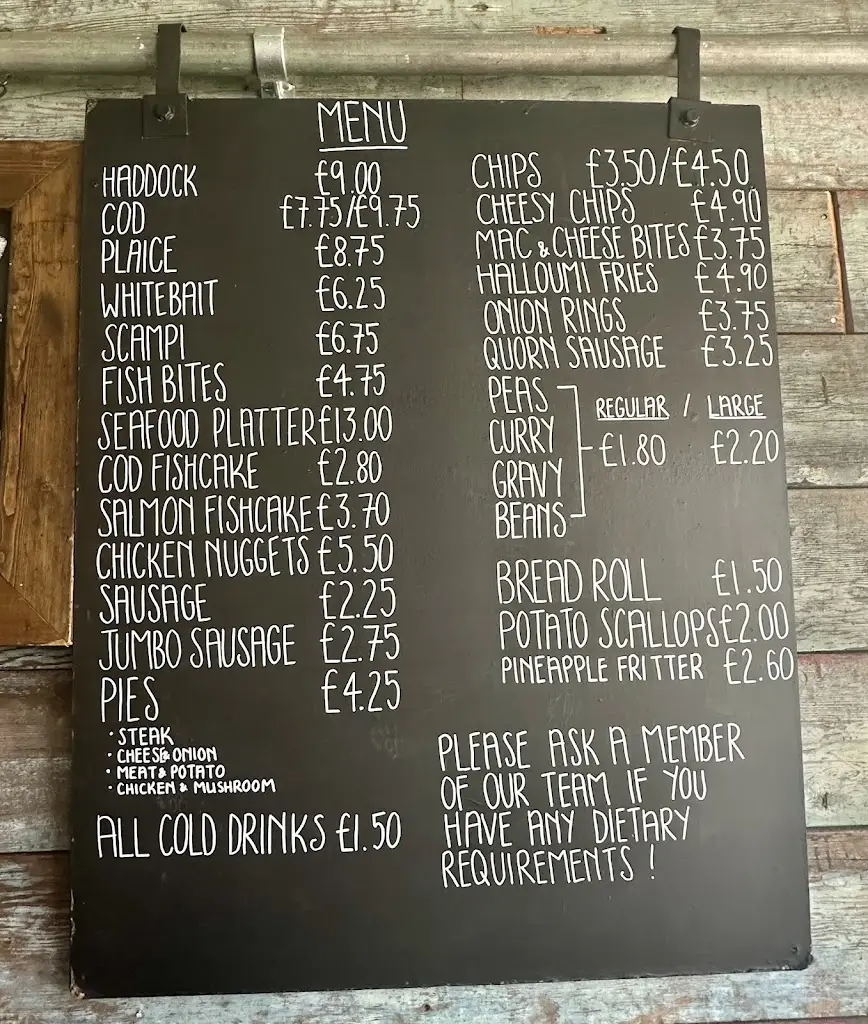 MENU
HADDOCK £9.00
COD £7.75/£9.75
PLAICE £8.75
WHITEBAIT £6.25
SCAMPI £6.75
FISH BITES £4.75
SEAFOOD PLATTER £13.00
COD FISHCAKE £2.80
SALMON FISHCAKE £3.70
CHICKEN NUGGETS £5.50
SAUSAGE £2.25
JUMBO SAUSAGE £2.75
PIES £4.25
· STEAK
· CHEESE & ONION
· MEAT & POTATO
· CHICKEN & MUSHROOM
ALL COLD DRINKS £1.50
CHIPS £3.50/£4.50
CHEESY CHIPS £4.90
MAC & CHEESE BITES £3.75
HALLOUMI FRIES £4.90
ONION RINGS £3.75
QUORN SAUSAGE £3.25
PEAS
CURRY
GRAVY
BEANS
REGULAR / LARGE
£1.80 £2.20
BREAD ROLL £1.50
POTATO SCALLOPS £2.00
PINEAPPLE FRITTER £2.60
PLEASE ASK A MEMBER
OF OUR TEAM IF YOU
HAVE ANY DIETARY
REQUIREMENTS !